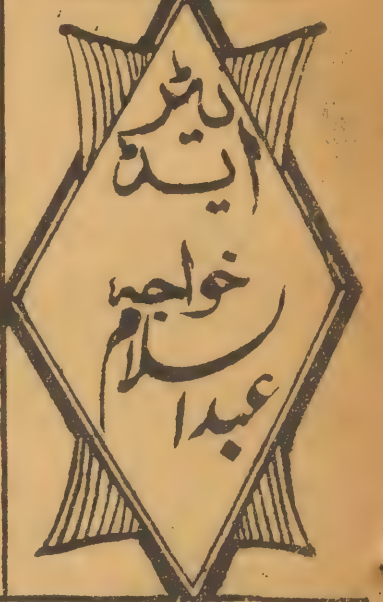 ایڈیٹر
خواجہ
عبدالسلام